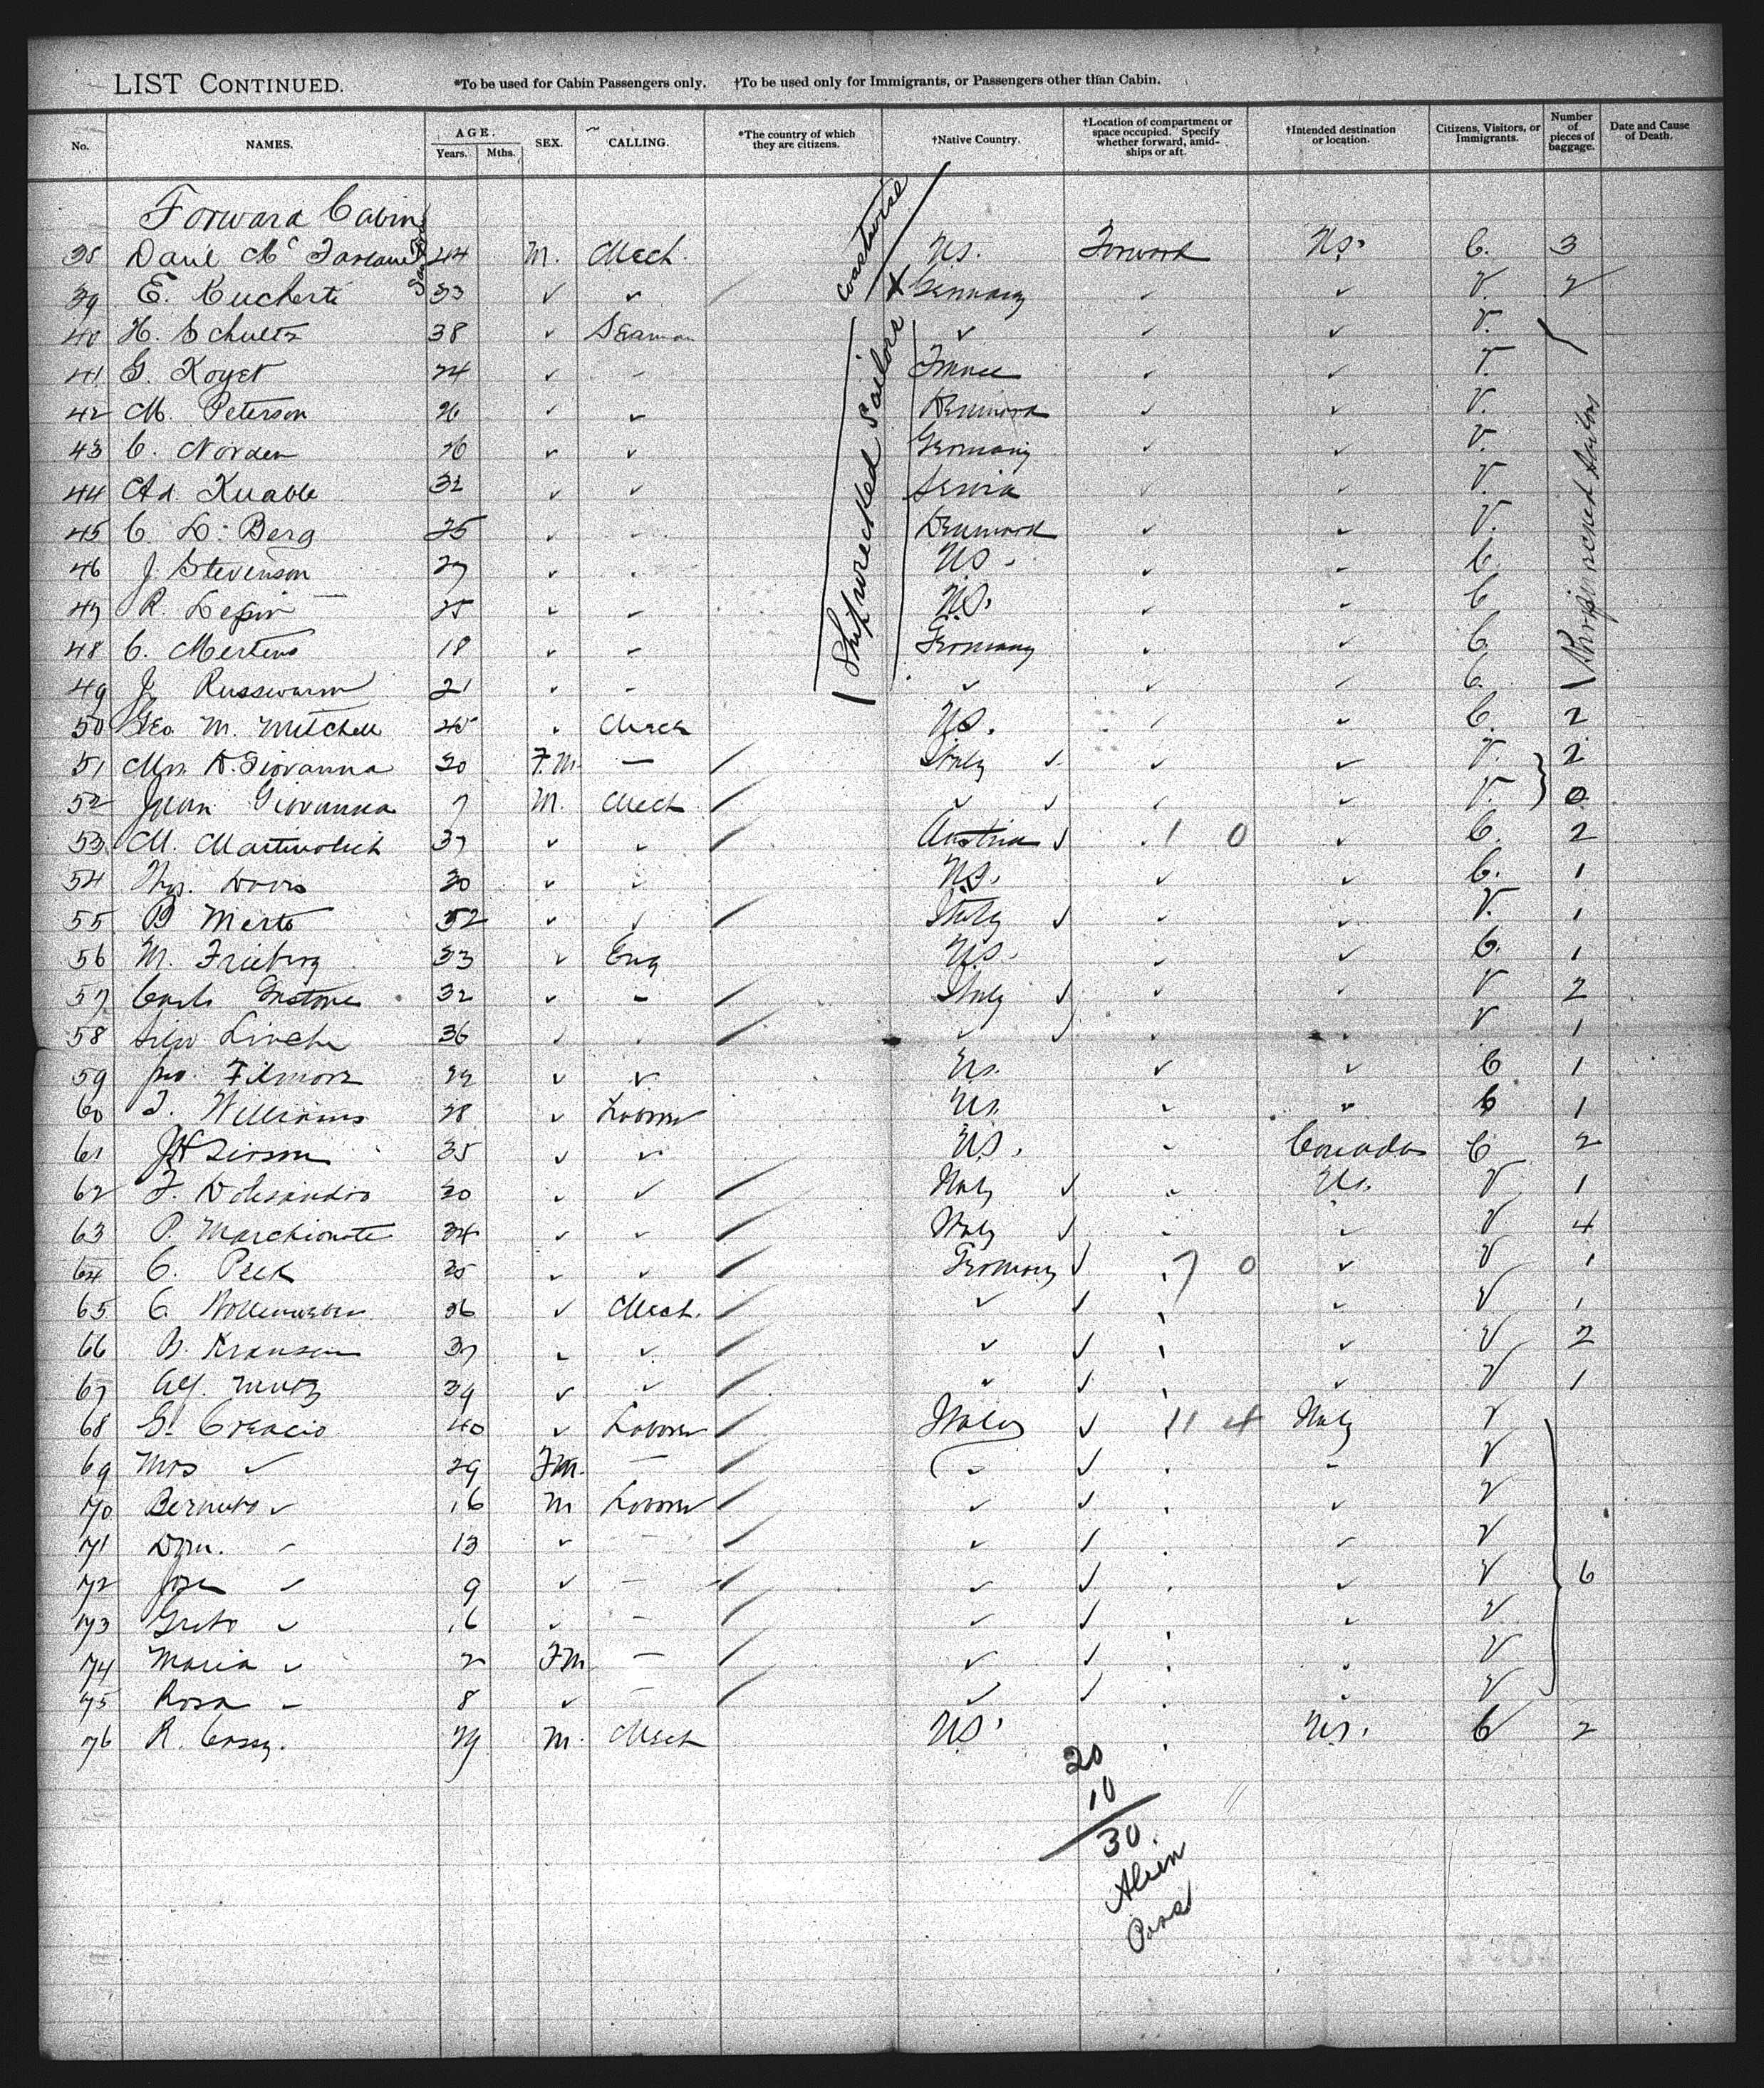 LIST CONTINUED. *To be used for Cabin Passengers only. †To be used only for Immigrants, or Passengers other than Cabin.
No. NAMES. AGE. Years. Mths. SEX. CALLING. *The country of which they are citizens. †Native Country. †Location of compartment or space occupied. Specify whether forward, amidships or aft. †Intended destination or location. Citizens, Visitors, or Immigrants. Number of pieces of baggage. Date and Cause of Death.
Forward Cabin
38 44 M. Mech. coastwise U.S. Forward U.S. C. 3
39 E. 33 ✓ ✓ X Germany ✓ ✓ V. 2
40 H. Schultz 38 ✓ Seaman Shipwrecked Sailors ✓ ✓ ✓ V. Shipwrecked Sailors
41 G. Koyet 24 ✓ - France ✓ ✓ V.
42 M. Peterson 26 ✓ ✓ Denmark ✓ ✓ V.
43 C. Norden 26 ✓ ✓ Germany ✓ ✓ V.
44 Ad. Knable 32 ✓ ✓ Servia ✓ ✓ V.
45 C. L. Berg 25 ✓ - Denmark ✓ ✓ V.
46 J. Stevenson 27 ✓ - U.S. ✓ - C.
47 R. 25 ✓ - U.S. ✓ - C
48 C. Mertens 18 ✓ - Germany ✓ ✓ C.
49 J. Russwurm 21 ✓ - ✓ ✓ ✓ C.
50 Geo. M. Mitchell 45 ✓ Mech U.S. ✓ ✓ C. 2
51 Mrs. D. Giovanna 20 F.M. — Italy ✓ ✓ ✓ V. 2
52 Juan Giovanna 7 M. Mech ✓ ✓ ✓ ✓ V. 0
53 M. Martinolich 37 ✓ ✓ Austria ✓ 1 0 ✓ C. 2
54 Davis 30 ✓ ✓ U.S. ✓ ✓ C. 1
55 B Merto 52 ✓ ✓ Italy ✓ ✓ ✓ V. 1
56 M. Frieberg 33 ✓ Eng U.S. ✓ ✓ C. 1
57 Carlo 32 ✓ - Italy ✓ ✓ ✓ V 2
58 36 ✓ ✓ ✓ ✓ V 1
59 Jno. Filmore 29 ✓ ✓ U.S. ✓ ✓ C 1
60 T. Williams 28 ✓ Laborer U.S. ✓ ✓ C 1
61 35 ✓ ✓ U.S. ✓ Canada C 2
62 F. 20 ✓ ✓ Italy ✓ ✓ U.S. V 1
63 P. Marchionte 34 ✓ ✓ Italy ✓ - ✓ V 4
64 C. Peck 25 ✓ ✓ Germany ✓ 7 0 ✓ V 1
65 C. Nollenweber 36 ✓ Mech. ✓ ✓ ✓ V 1
66 37 ✓ ✓ ✓ ✓ ✓ V 2
67 39 ✓ ✓ ✓ ✓ ✓ V 1
68 40 ✓ Laborer Italy ✓ 11 4 Italy V
69 Mrs ✓ 29 F.M. — ✓ ✓ - V
70 ✓ 16 M Laborer ✓ ✓ ✓ V
71 Dom. ✓ 13 ✓ - ✓ ✓ ✓ V
72 Jose ✓ 9 ✓ - ✓ ✓ ✓ V 6
73 ✓ 16 ✓ - ✓ ✓ ✓ V
74 Maria ✓ 2 F.M — ✓ ✓ ✓ V
75 Rosa ✓ 8 ✓ - ✓ ✓ ✓ V
76 R. 29 M. Mech U.S. U.S. C 2
20
10
30.
Alien
Pass